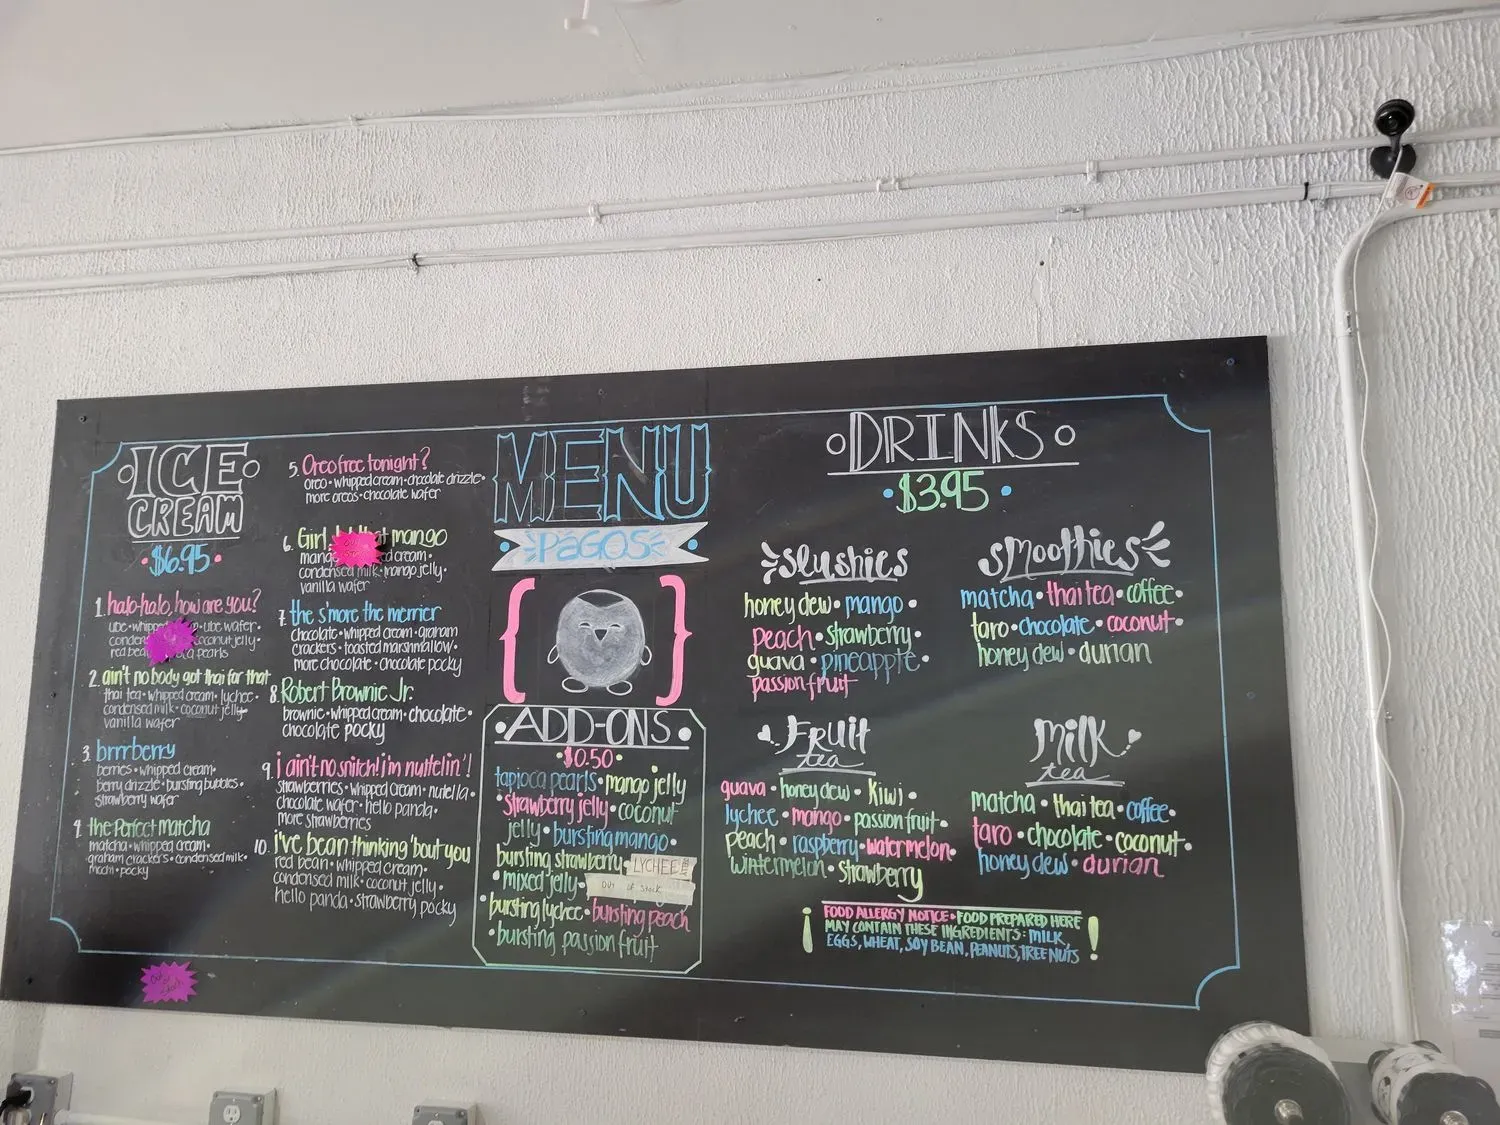 ICE
CREAM
$6.95
1. halo-halo, how are you?
ube • whipped • ube wafer •
coconut jelly •
pearls
2. ain't nobody got thai for that
thai tea • whipped cream • lychee •
condensed milk • coconut jelly •
vanilla wafer
3. brrrberry
berries • whipped cream •
berry drizzle • bursting bubbles •
strawberry wafer
4. the Perfect matcha
matcha • whipped cream •
graham crackers • condensed milk •
mochi • pocky
5. Oreo free tonight?
oreo • whipped cream • chocolate drizzle •
more oreos • chocolate wafer
6. Girl, mango
cream •
condensed milk • mango jelly •
vanilla wafer
7. the s'more the merrier
chocolate • whipped cream • graham
crackers • toasted marshmallow •
more chocolate • chocolate pocky
8. Robert Brownie Jr.
brownie • whipped cream • chocolate •
chocolate pocky
9. i ain't no snitch! i'm nuttelin'!
strawberries • whipped cream • nutella •
chocolate wafer • hello panda •
more strawberries
10. i've bean thinking 'bout you
red bean • whipped cream •
condensed milk • coconut jelly •
hello panda • strawberry pocky
out of stock
MENU
PAGOS
ADD-ONS
$0.50
tapioca pearls • mango jelly
• strawberry jelly • coconut
jelly • bursting mango •
bursting strawberry • LYCHEE
• mixed jelly • OUT OF STOCK
• bursting lychee • bursting peach
• bursting passion fruit
DRINKS
$3.95
slushies
honey dew • mango •
peach • strawberry •
guava • pineapple •
passion fruit
smoothies
matcha • thai tea • coffee •
taro • chocolate • coconut •
honey dew • durian
Fruit
tea
guava • honey dew • kiwi •
lychee • mango • passion fruit •
peach • raspberry • watermelon •
wintermelon • strawberry
Milk
tea
matcha • thai tea • coffee •
taro • chocolate • coconut •
honey dew • durian
FOOD ALLERGY NOTICE • FOOD PREPARED HERE
MAY CONTAIN THESE INGREDIENTS: MILK,
EGGS, WHEAT, SOY BEAN, PEANUTS, TREE NUTS